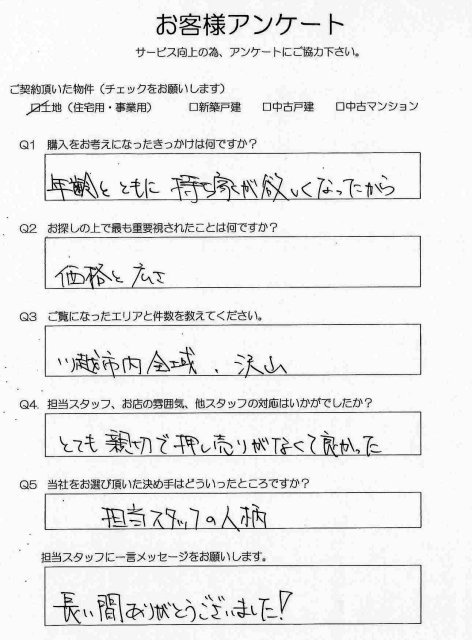 お客様アンケート
サービス向上の為、アンケートにご協力下さい。
ご契約頂いた物件（チェックをお願いします）
☑土地（住宅用・事業用） □新築戸建 □中古戸建 □中古マンション
Q1 購入をお考えになったきっかけは何ですか？
年齢とともに持ち家が欲しくなったから
Q2 お探しの上で最も重要視されたことは何ですか？
価格と広さ
Q3 ご覧になったエリアと件数を教えてください。
川越市内全域、沢山
Q4 担当スタッフ、お店の雰囲気、他スタッフの対応はいかがでしたか？
とても親切で押し売りがなくて良かった
Q5 当社をお選び頂いた決め手はどういったところですか？
担当スタッフの人柄
担当スタッフに一言メッセージをお願いします。
長い間ありがとうございました！